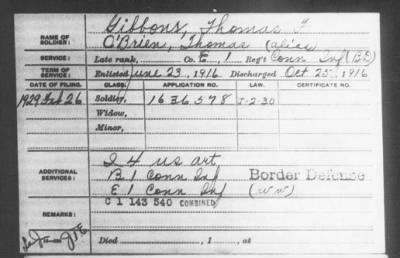 NAME OF SOLDIER: Gibbons, Thomas F
O'Brien, Thomas (alias)
SERVICE: Late rank, Co. E, 1 Reg't Conn Inf (BD)
TERM OF SERVICE: Enlisted June 23, 1916 Discharged Oct 25, 1916
DATE OF FILING. CLASS. APPLICATION NO. LAW. CERTIFICATE NO.
1929 Feb 26 Soldier, 1636578 J-2-30
Widow,
Minor,
ADDITIONAL SERVICES: I 4 us art
B 1 Conn Inf Border Defense
E 1 Conn Inf (ww)
C 1 143 540 COMBINED
REMARKS:
Died , 1 , at